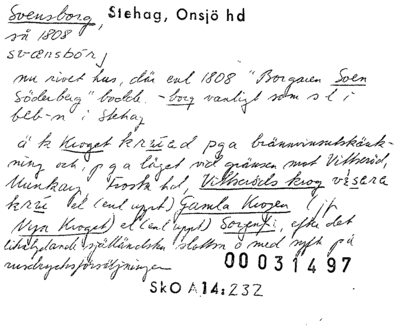 Svensborg, Stehag, Onsjö hd
så 1808
svænsbörj
nu rivet hus, där enl 1808 "Borgaren Sven
Söderberg" bodde. - borg vanligt som sl i
beb-n i Stehag
ä k Kroget krɯ́əd pga brännvinsutskänk-
ning och p g a läget vid gränsen mot Vittseröd,
Munkarp, Frosta hd, Vittseröds krog
krɯ́ el (enl uppt) Gamla Krogen (jfr
Nya Kroget) el (enl uppt) Sorgenfri, efter det
likalydande själländska slottet o med syft på
rusdrycksförsäljningen
00031497
SkO A14:232